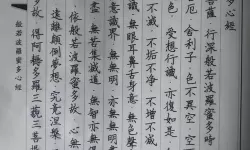 菩薩 行深般若波羅蜜多時
厄 舍利子 色不異空 空
受想行識 亦復如是
不滅 不垢不淨 不增不減
無眼耳鼻舌身意 無色聲
意識界 無無明 亦無
盡 無苦集滅道 無智亦無
故 依般若波羅蜜多故 心
遠離顛倒夢想 究竟涅槃
多故 得阿耨多羅三藐三菩提
般若波羅蜜多心經